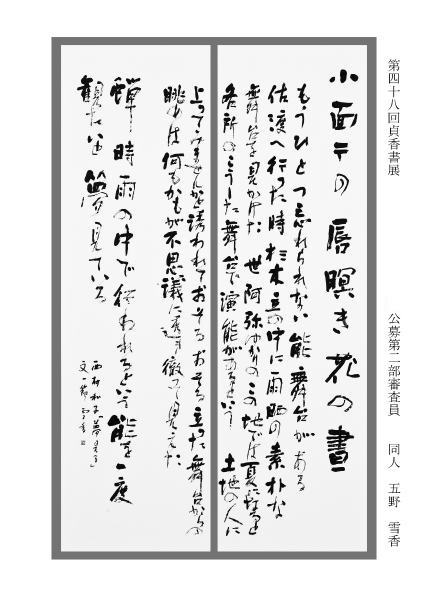 第四十八回貞香書展
公募第二部審査員　同人　五野　雪香
小面の唇瞑き花の昼
もうひとつ忘れられない能舞台がある
佐渡へ行った時杉木立の中に雨晒の素朴な
舞台を見かけた 世阿弥ゆかりのこの地では夏になると
各所のこうした舞台で演能があるという 土地の人に
上ってみませんかと誘われておそるおそる立った舞台からの
眺めは何もかもが不思議に透き徹って見えた
蝉時雨の中で行われるという能を一度
観たいと夢見ている